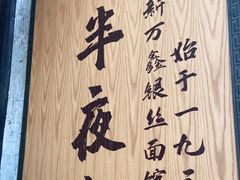 始于一九
新万鑫银丝面馆
半夜